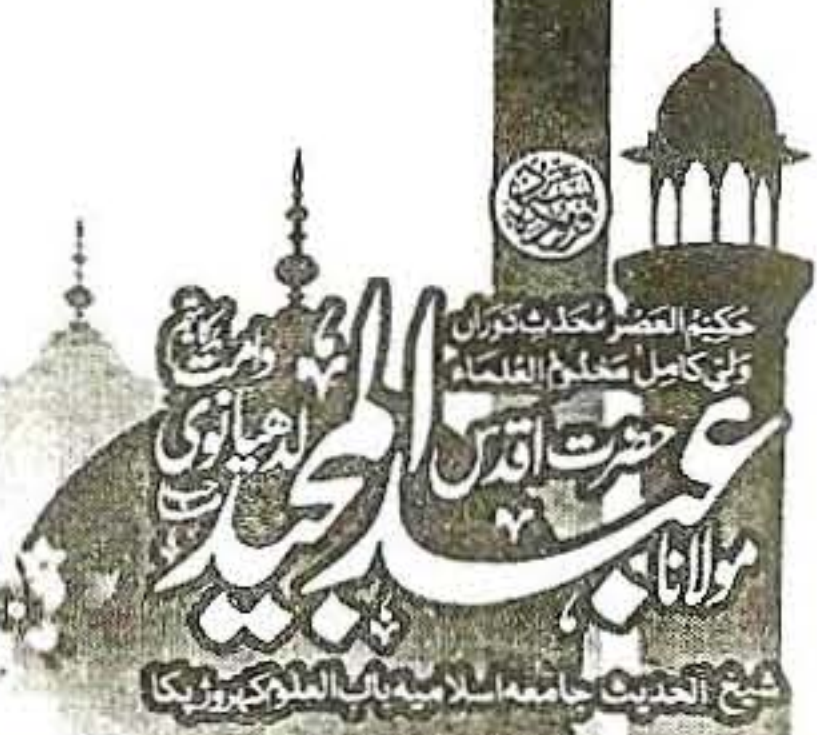 حکیم العصر محدث دوراں
ولی کامل مخدوم العلماء
حضرت اقدس
مولانا عبدالمجید لدھیانوی
دامت برکاتہم
شیخ الحدیث جامعہ اسلامیہ باب العلوم کہروڑ پکا